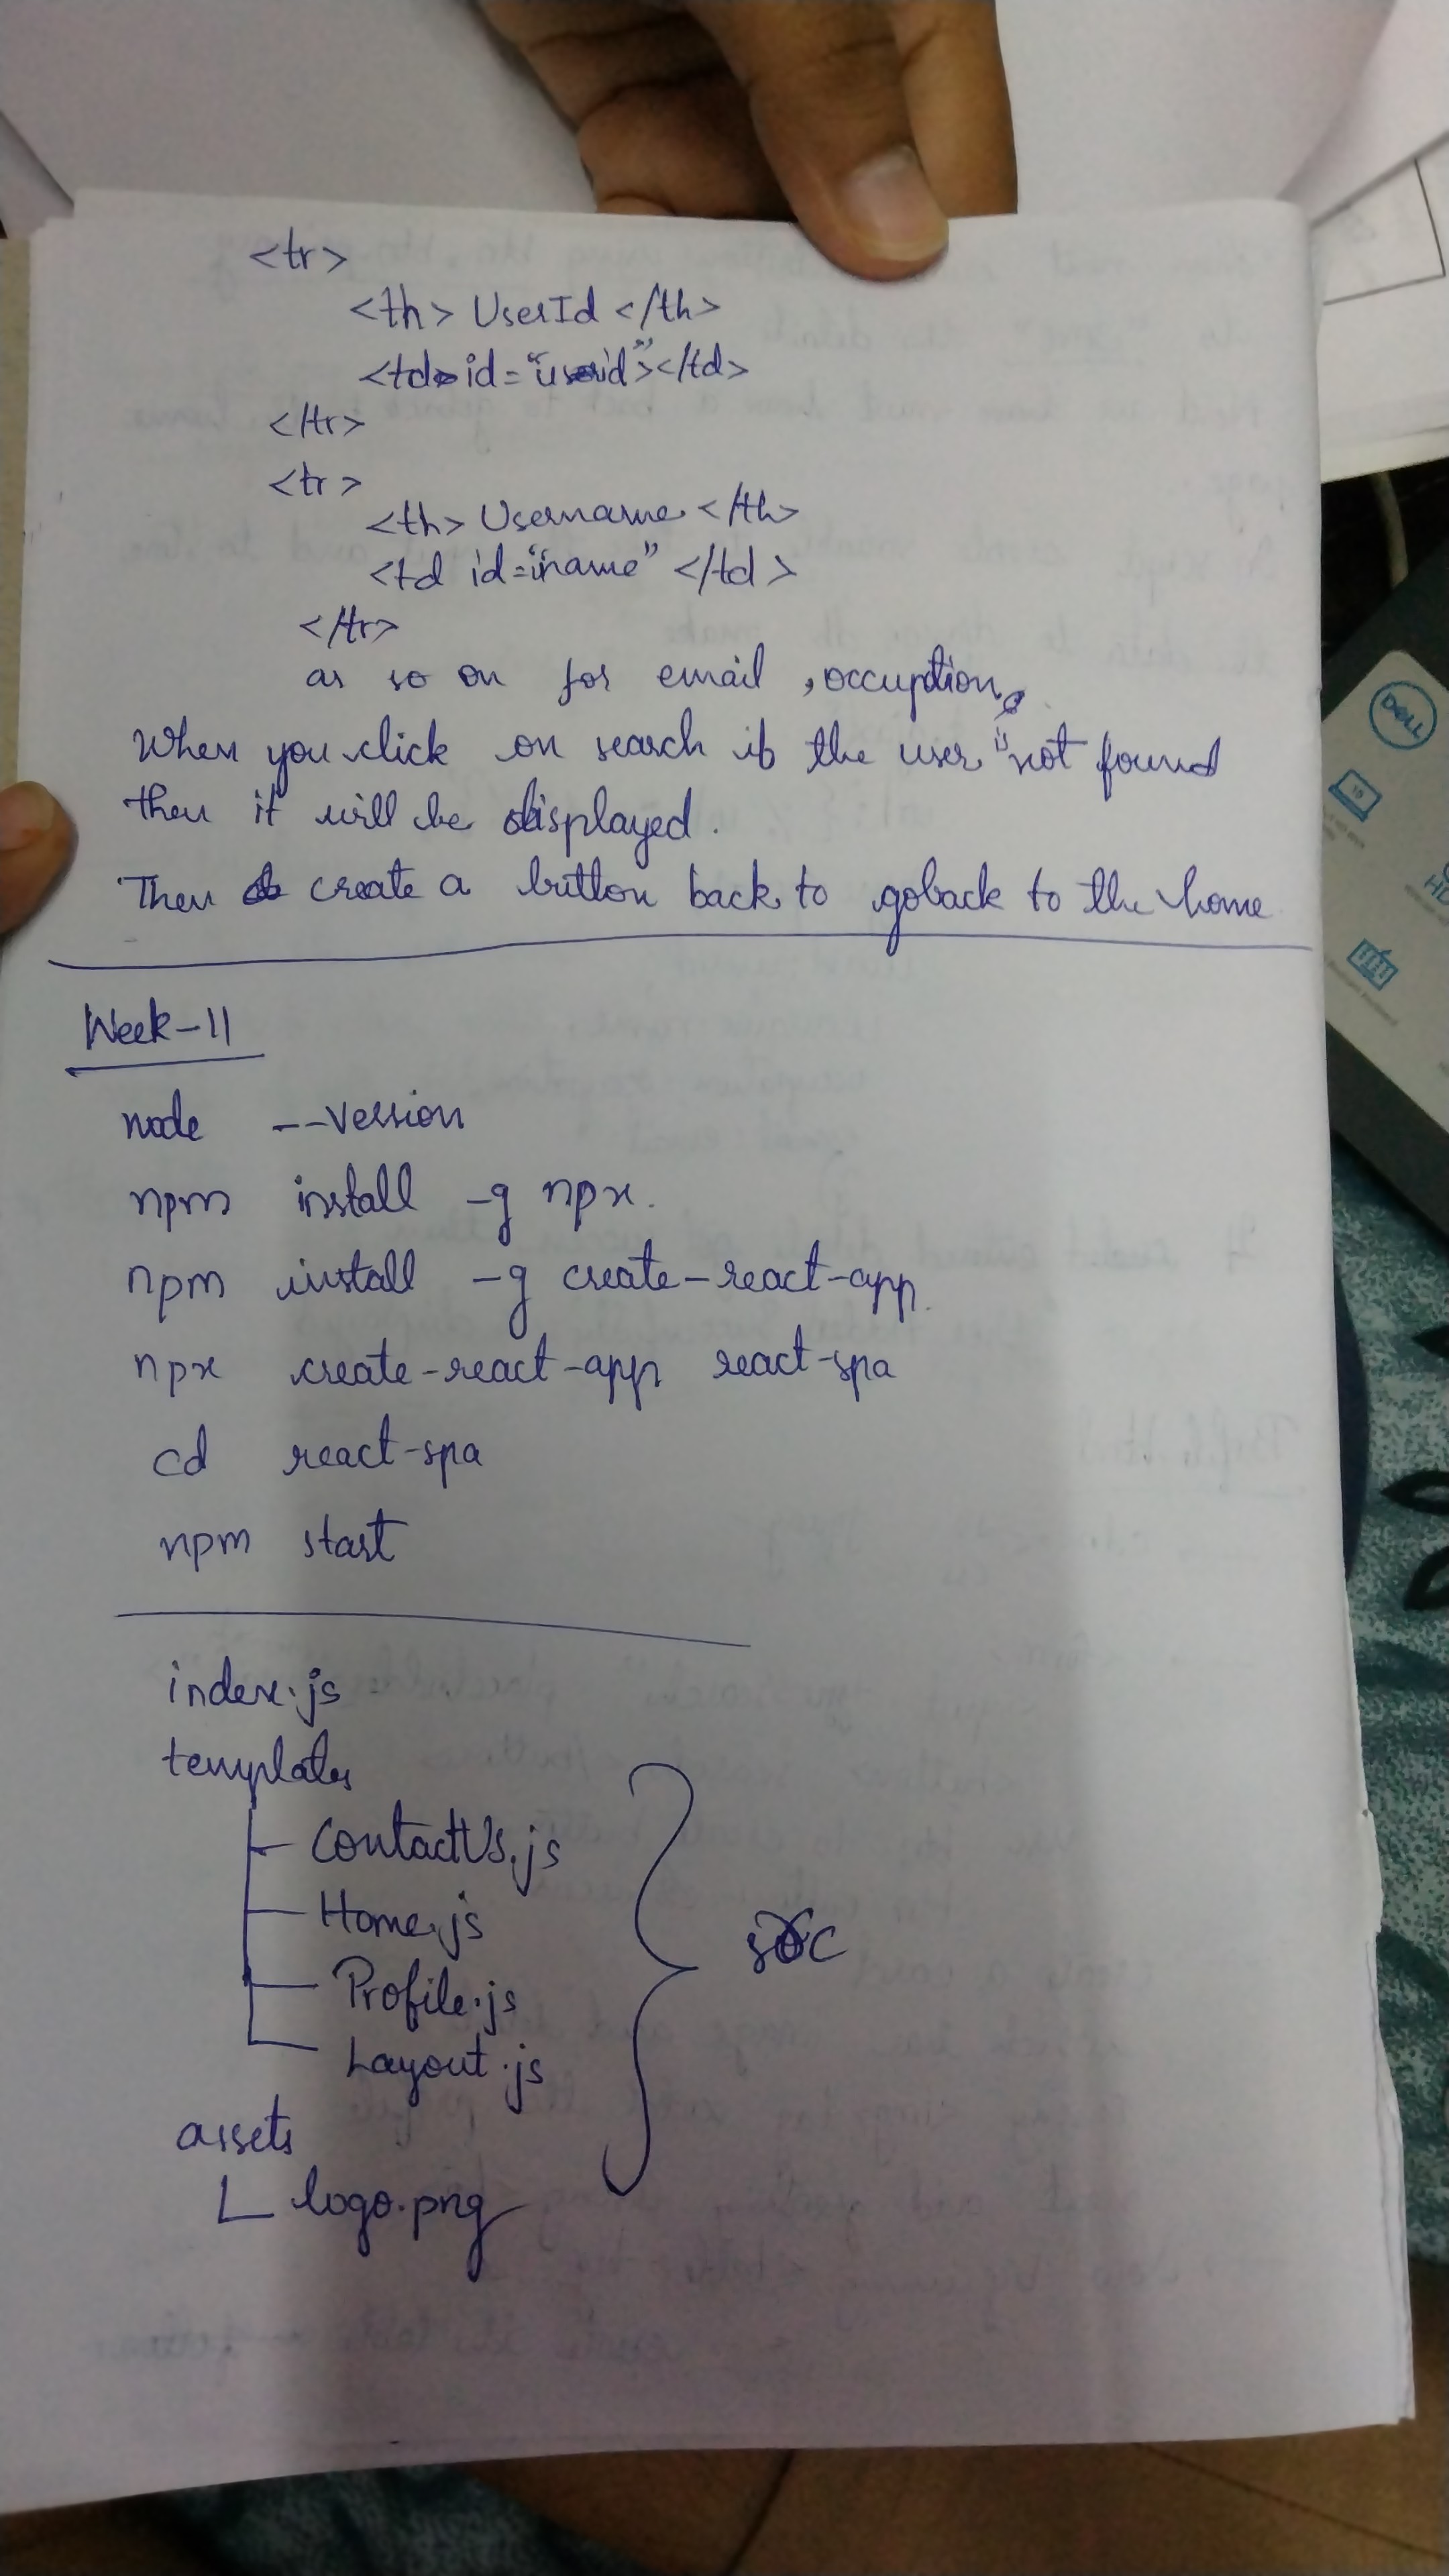 <tr>
<th> UserId </th>
<td id="userid"></td>
</tr>
<tr>
<th> Username </th>
<td id="name" </td>
</tr>
as so on for email, occuption,
When you click on search if the user "not found"
then it will be displayed.
Then create a button back to goback to the home
Week-11
node --version
npm install -g npx.
npm install -g create-react-app.
npx create-react-app react-spa
cd react-spa
npm start
index.js
templates
ContactUs.js
Home.js
Profile.js
Layout.js
src
assets
logo.png
DELL